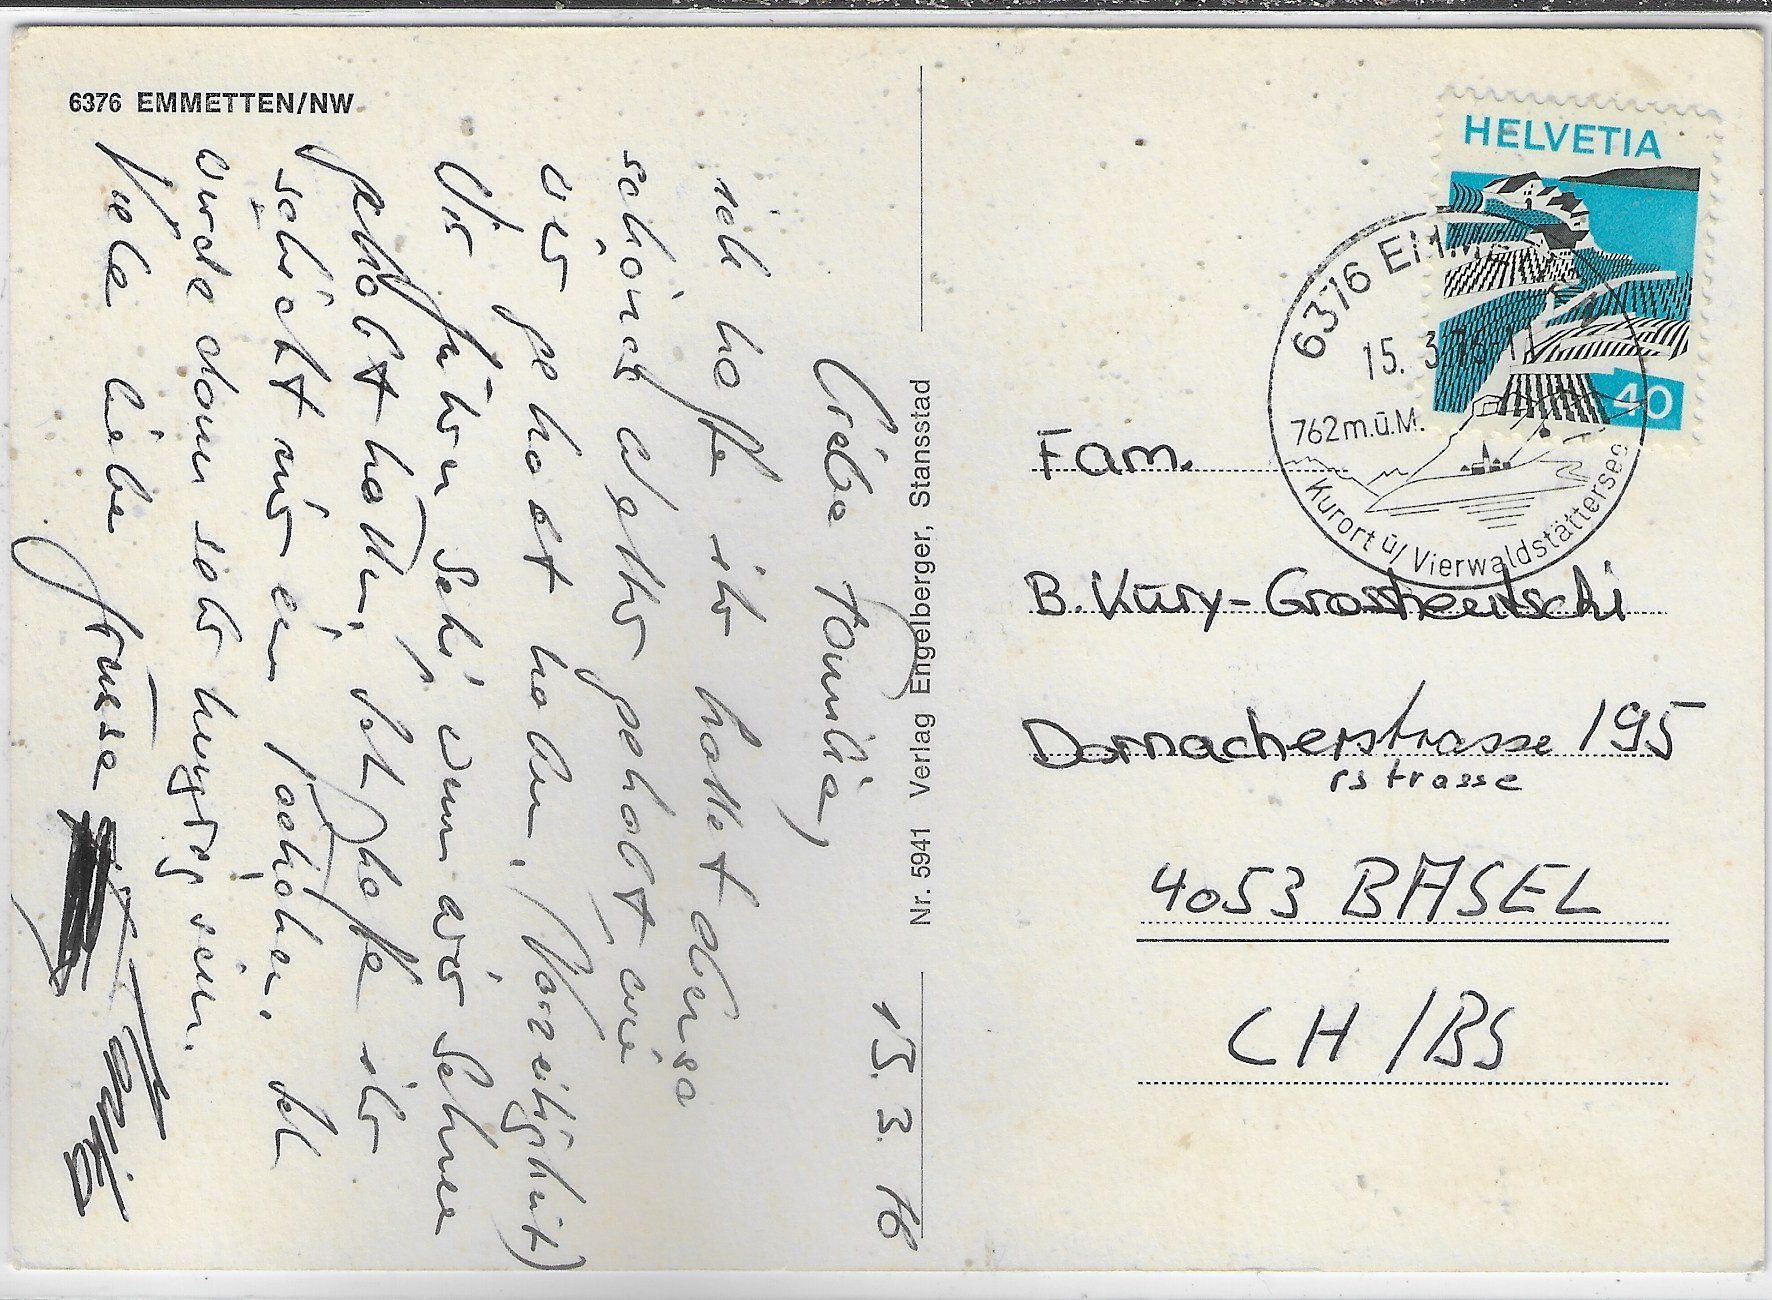 6376 EMMETTEN/NW
15.3.76
Liebe Familie,
ich hoffe ihr hattet ebenso
schönes Wetter gehabt, wie
wir gehabt haben. (Vorzeitig
Wir fahren Schi wenn wir Schnee
gehabt hätten, Ich hoffe ihr
schickt mir ein päckchen. Ich
würde dann sehr hungrig sein.
Viele liebe Grüsse
Nr. 5941 Verlag Engelberger, Stansstad
HELVETIA
40
6376 EMME
15. 3. 76-11
762 m.ü.M.
Kurort ü/Vierwaldstättersee
Fam.
B. Küry-Grossheutschi
Dornacherstrasse 195
rstrasse
4053 BASEL
CH/BS